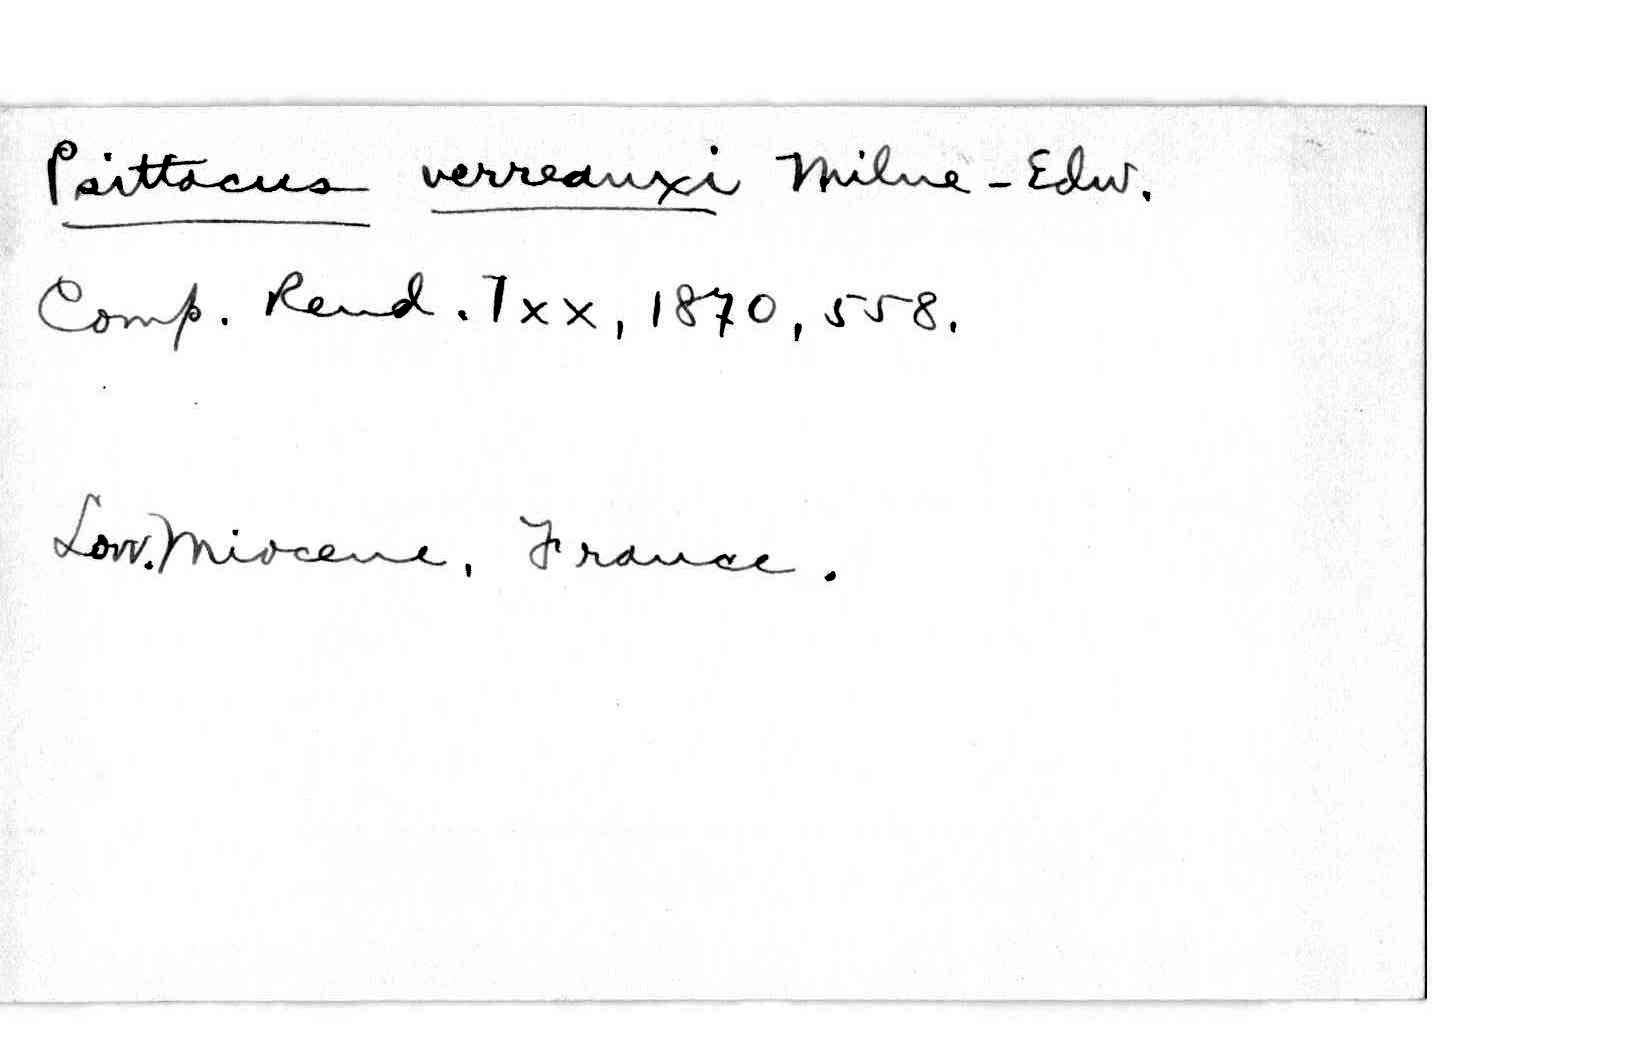 Psittacus verreauxi Milne-Edw.
Comp. Rend. Txx, 1870, 558.
Low. Miocene, France.